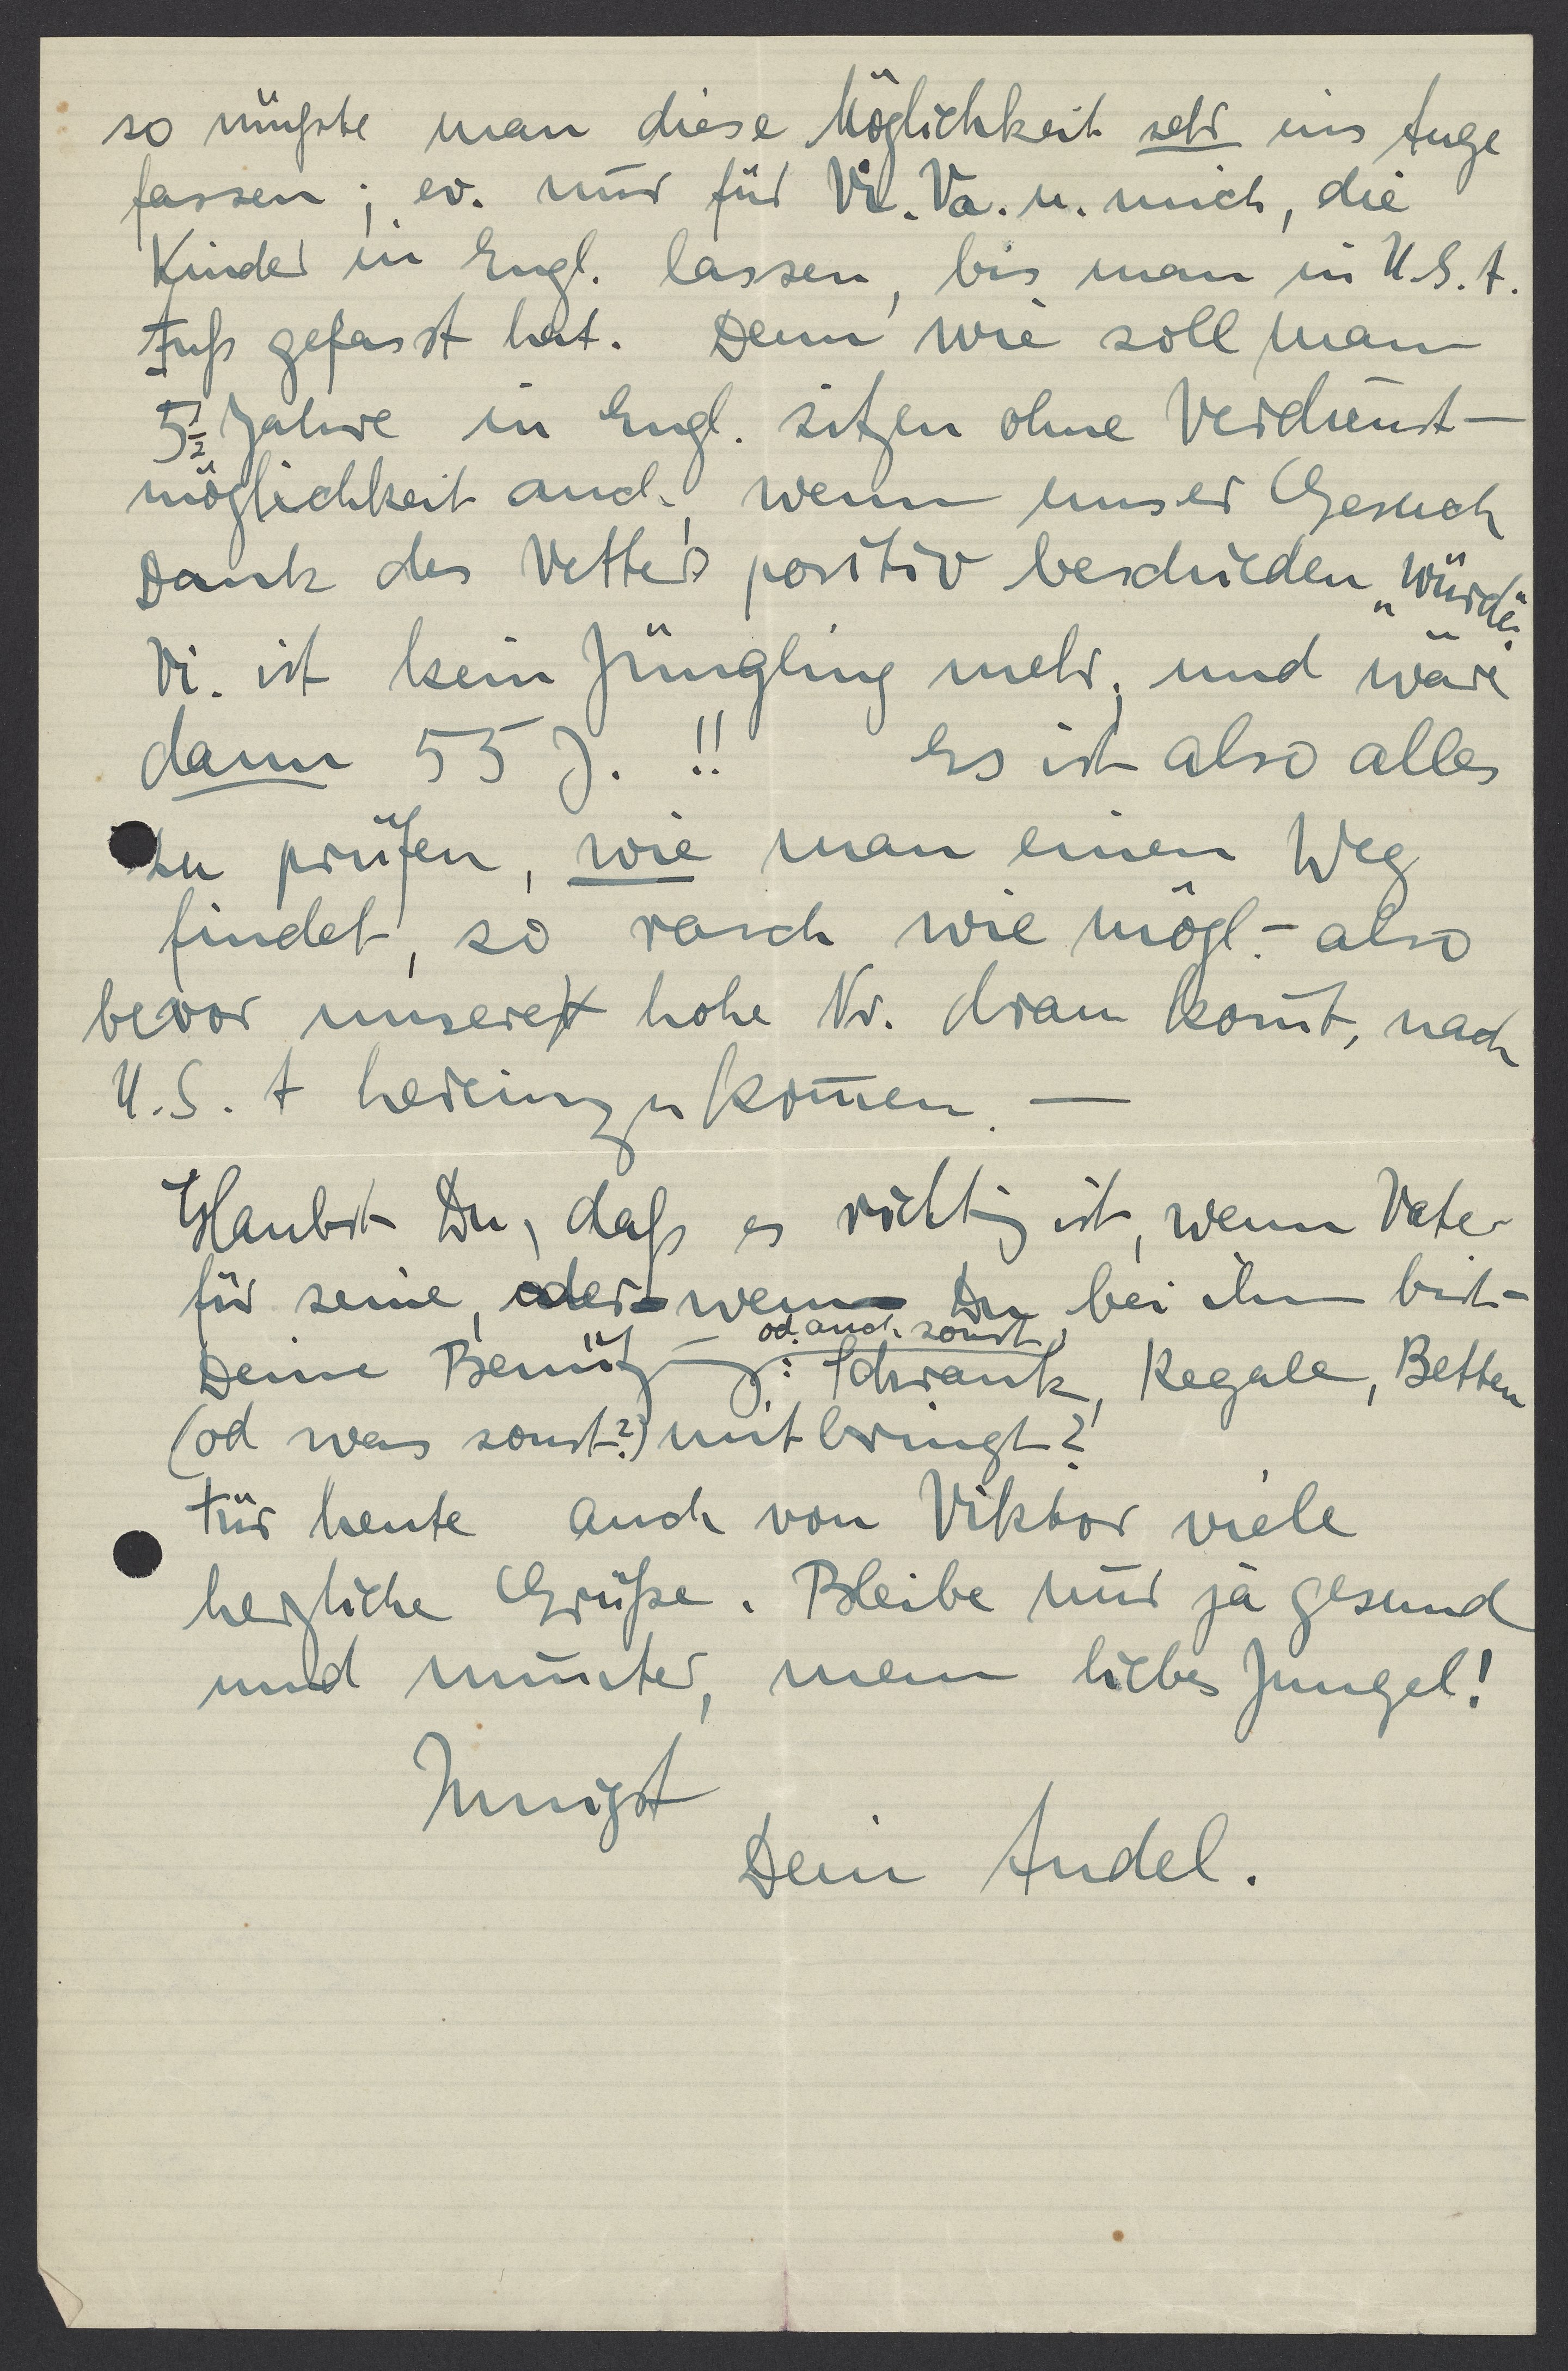 so müßte man diese Möglichkeit sehr ins Auge
fassen; ev. nur für Vi. Va. u. mich, die
Kinder in Engl. lassen, bis man in U.S.A.
Fuß gefasst hat. Denn wie soll man
5½ Jahre in Engl. sitzen ohne Verdienst-
möglichkeit auch, wenn unser Gesuch
Dank des Vetters positiv beschieden „würde“.
Vi. ist kein Jüngling mehr, und wäre
dann 55 J. !! Es ist also alles
zu prüfen, wie man einen Weg
findet, so rasch wie mögl. - also
bevor unsere hohe Nr. dran kom̅t, nach
U.S.A hereinzukom̅en. —
Glaubst Du, daß es richtig ist, wenn Vater
für seine, oder - wenn Du bei ihm bist -
od. auch sonst
Deine Benützg: Schrank, Regale, Betten
(od was sonst?) mitbringt?
Für heute auch von Viktor viele
herzliche Grüße. Bleibe nur ja gesund
und munter, mein liebes Jungel!
Innigst
Dein Andel.